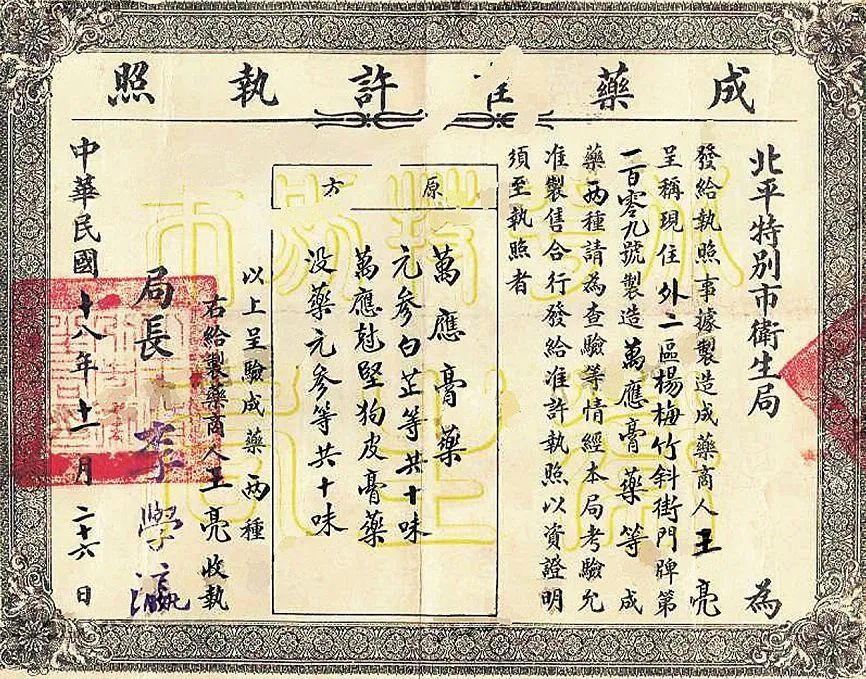 成藥准許執照
北平特別市衛生局 為
發給執照事據製造成藥商人王亮
呈稱現住外二區楊梅竹斜街門牌第
一百零九號製造萬應膏藥等成
藥兩種請為查驗等情經本局考驗允
准製售合行發給准許執照以資證明
須至執照者
原方
萬應膏藥
元參白芷等共十味
萬應尅堅狗皮膏藥
沒藥元參等共十味
以上呈驗成藥兩種
右給製藥商人王亮收執
局長李學瀛
中華民國十八年十一月二十六日